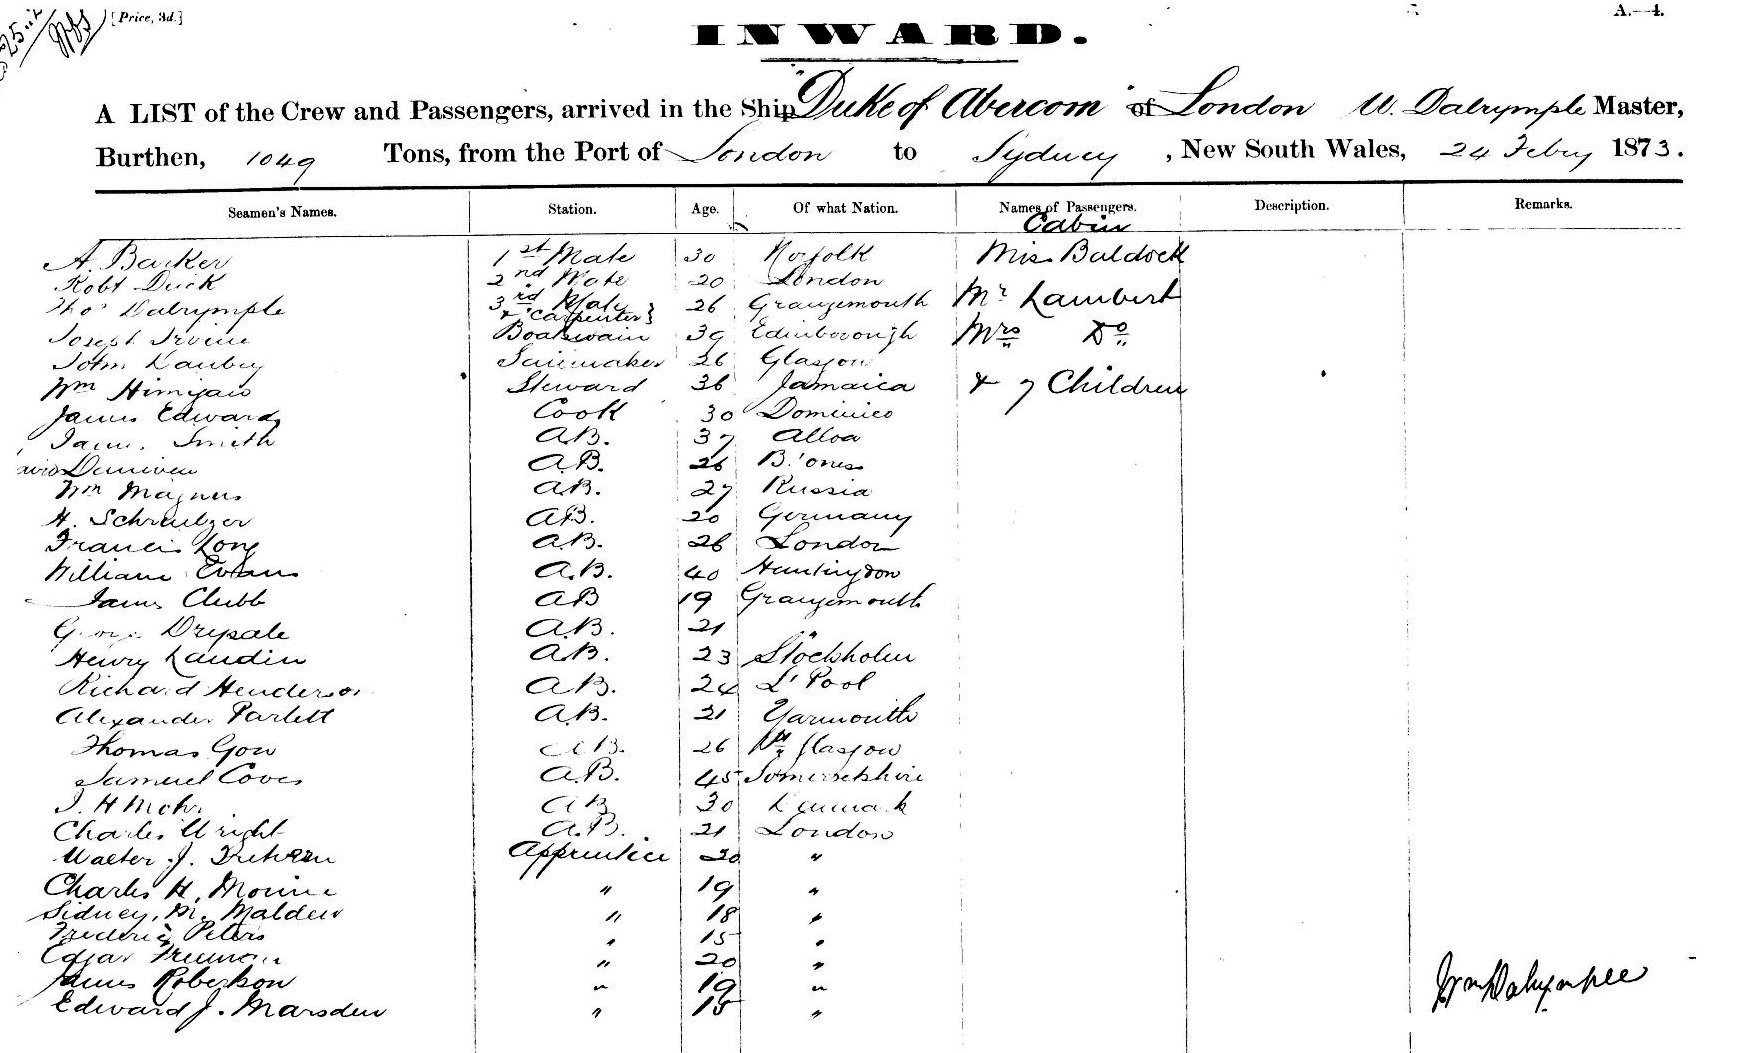 [Price, 3d.]
A.—4.
INWARD.
A LIST of the Crew and Passengers, arrived in the Ship "Duke of Abercorn" of London W. Dalrymple Master,
Burthen, 1049 Tons, from the Port of London to Sydney, New South Wales, 24 Feby 1873.
Seamen's Names. Station. Age. Of what Nation. Names of Passengers. Description. Remarks.
Cabin
A. Barker 1st Mate 30 Norfolk Miss Baldock
Robt Duck 2nd Mate 20 London
Thos Dalrymple 3rd Mate & Carpenter } 26 Grangemouth Mr Lambert
Joseph Irvine Boatswain 39 Edinborough Mrs Do
John Danby Sailmaker 26 Glasgow
Wm Steward 36 Jamaica & 7 Children
James Edwards Cook 30 Dominico
James Smith A.B. 37 Alloa
A.B. 26 B.'oness
Wm Magnus A.B. 27 Russia
H. A.B. 20 Germany
Francis Long A.B. 26 London
William Evans A.B. 40 Huntingdon
James Clubb AB 19 Grangemouth
George A.B. 21 "
Henry Landin A.B. 23 Stockholm
Richard Henderson A.B. 24 L'Pool
Alexander Parlett A.B. 21 Yarmouth
Thomas Gow A.B. 26 Pt Glasgow
Samuel A.B. 45 Somersetshire
J. H Mohr AB 30 Denmark
Charles Wright A.B. 21 London
Walter J. Apprentice 20 "
Charles H. " 19 "
Sidney. M. Malden " 18 "
Frederic Peters " 15 "
Edgar Freeman " 20 "
James Roberson " 19 "
Edward J. Marsden " 15 "
Wm Dalrymple